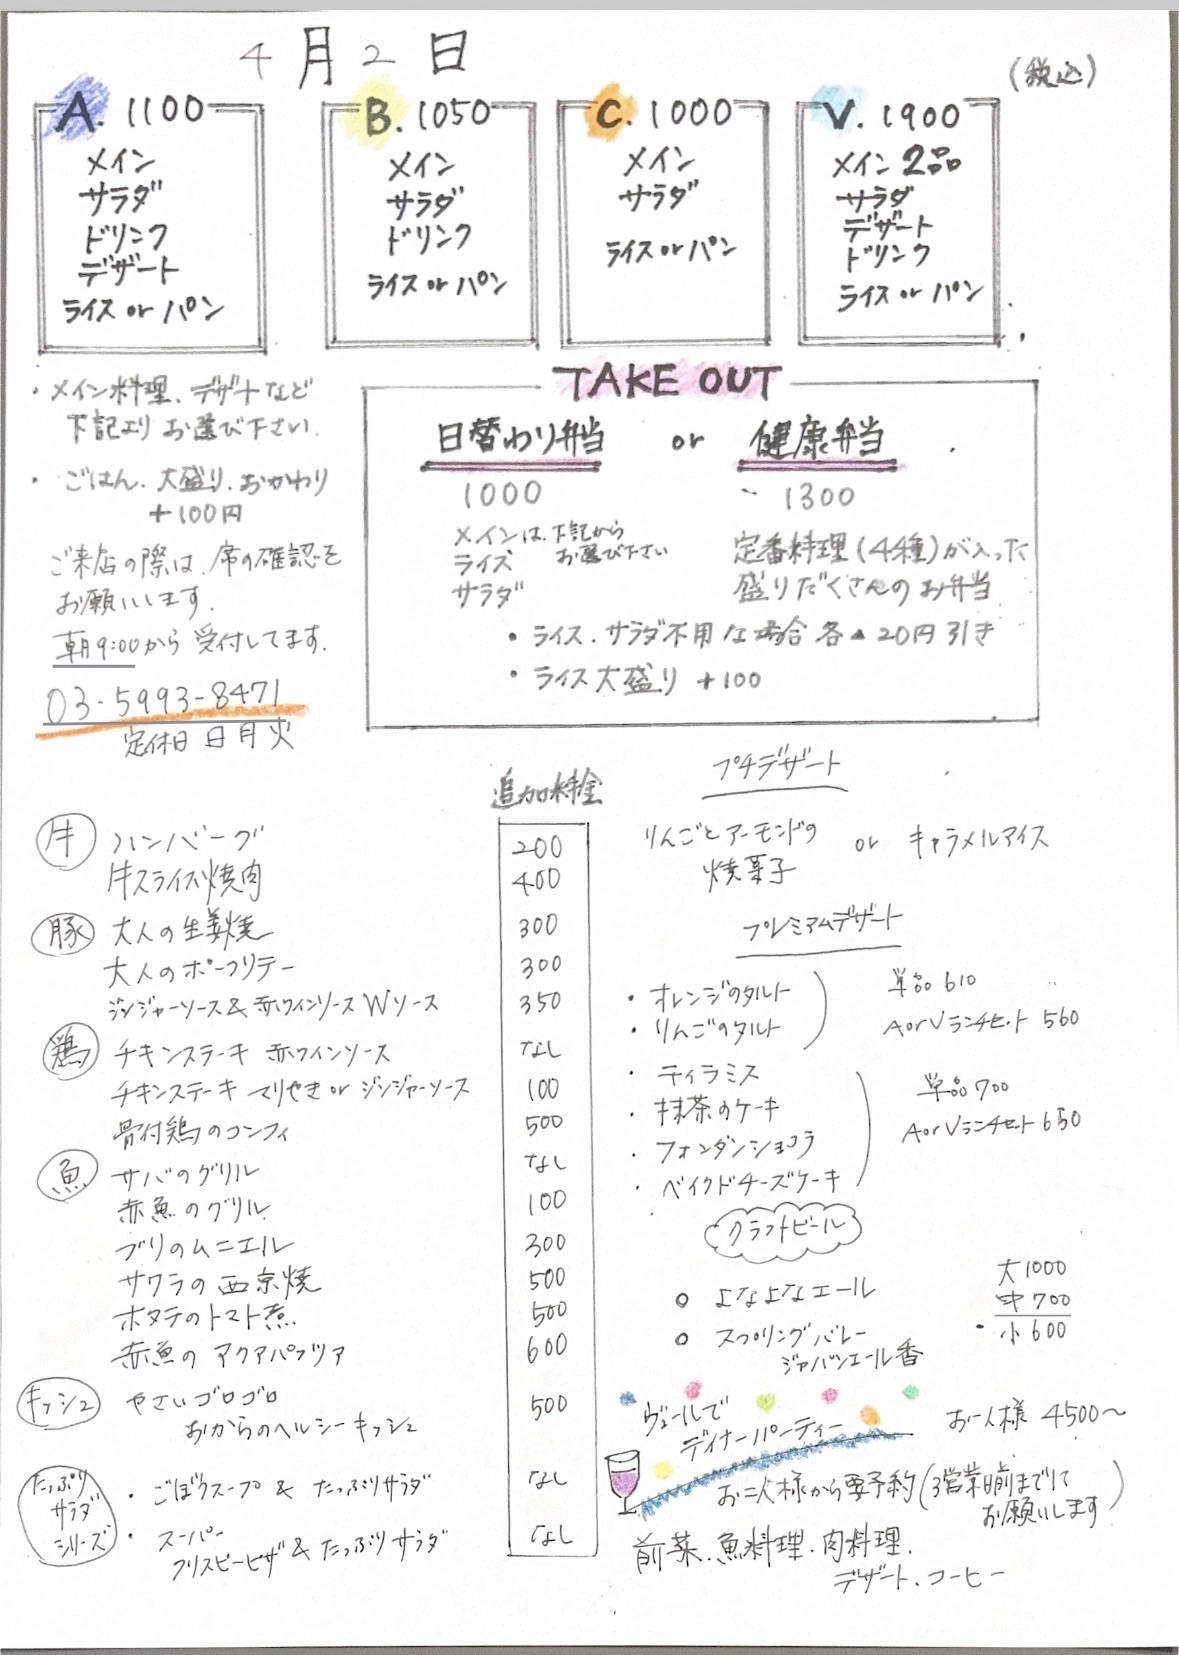 4月2日
(税込)
A. 1100
メイン
サラダ
ドリンク
デザート
ライス or パン
B. 1050
メイン
サラダ
ドリンク
ライス or パン
C. 1000
メイン
サラダ
ライス or パン
V. 1900
メイン 2品
サラダ
デザート
ドリンク
ライス or パン
・メイン料理、デザートなど
下記よりお選び下さい.
・ごはん.大盛り.おかわり
+100円
ご来店の際は、席の確認を
お願いします.
朝9:00から受付してます.
03-5993-8471
定休日 日月火
TAKE OUT
日替わり弁当 or 健康弁当
1000
メインは、下記から
お選び下さい
ライス
サラダ
1300
定番料理(4種)が入った
盛りだくさんのお弁当
・ライス.サラダ不用な場合各▲20円引き
・ライス大盛り +100
追加料金
牛 ハンバーグ 200
牛スライス焼肉 400
豚 大人の生姜焼 300
大人のポークソテー 300
ジンジャーソース&赤ワインソース Wソース 350
鶏 チキンステーキ 赤ワインソース なし
チキンステーキ テリヤキ or ジンジャーソース 100
骨付鶏のコンフィ 500
魚 サバのグリル なし
赤魚のグリル 100
ブリのムニエル 300
サワラの西京焼 500
ホタテのトマト煮 500
赤魚のアクアパッツァ 600
キッシュ やさいゴロゴロ
おからのヘルシーキッシュ 500
たっぷり
サラダ
シリーズ
・ごぼうスープ & たっぷりサラダ なし
・スーパー
クリスピーピザ & たっぷりサラダ なし
プチデザート
りんごとアーモンドの
焼菓子 or キャラメルアイス
プレミアムデザート
・オレンジのタルト
・りんごのタルト
単品 610
AorVランチセット 560
・ティラミス
・抹茶のケーキ
・フォンダンショコラ
・ベイクドチーズケーキ
単品 700
AorVランチセット 650
クラフトビール
○ よなよなエール
○ スプリングバレー
ジャパンエール香
大1000
中700
・小600
ヴェールで
ディナーパーティー
お一人様 4500〜
お二人様から要予約(3営業日前までにて
お願いします)
前菜.魚料理.肉料理.
デザート.コーヒー